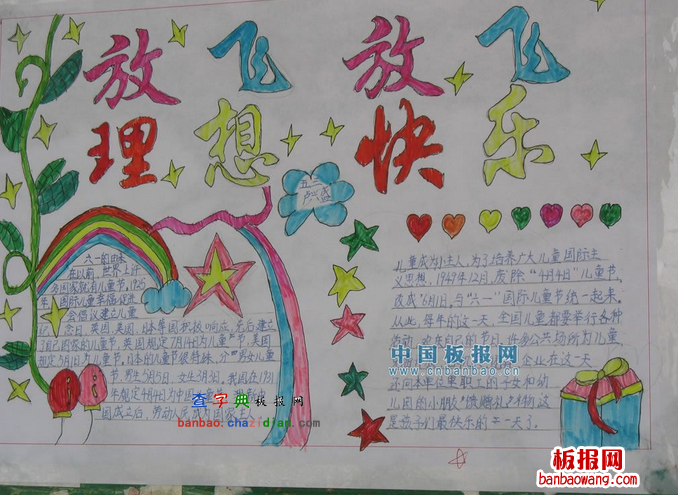 放飞 放飞
理想 快乐
五二
卢
六一的由来
在以前,世界上许
多国家就有儿童节,1925
年,国际儿童幸福促进
会倡议建立儿童
纪念日,英国,美国,日本等国积极响应,先后建立
了自己国家的儿童节,英国规定7月14日为儿童节,美国
规定5月1日为儿童节,日本的儿童节很特殊,分男女儿童
节,男生5月5日,女生3月3日,我国在1931
年规定4月4日为中
国成立后,劳动人民成为国家主人
儿童成为小主人,为了培养广大儿童国际主
义思想,1949年12月,废除“4月4日”儿童节,
改成6月1日,与“六一”国际儿童节统一起来。
从此,每年的这一天,全国儿童都要举行各种
活动,欢庆自己的节日,许多公共场所为儿童
企业在这一天
还向本单位里职工的子女和幼
儿园的小朋友馈赠礼物
是孩子们最快乐的一天了。
中国板报网
www.cnbanbao.cn
查字典板报网
banbao.chazidian.com
板报网
banbaowang.com